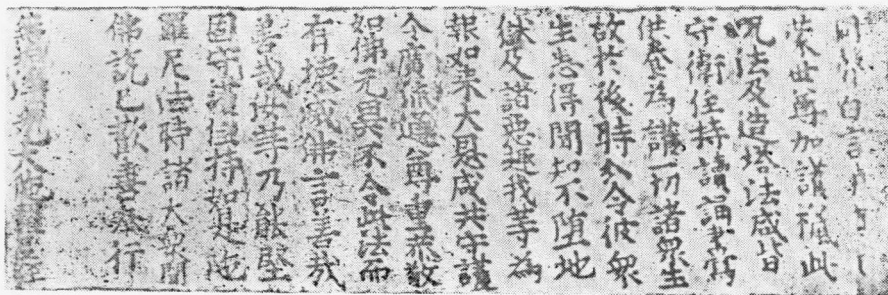 白言
蒙世尊加護授此
呪法及造塔法咸皆
守衛住持讀誦書寫
供養為護一切諸衆生
故於後時分令彼衆
生悉得聞知不墮地
獄及諸惡趣我等為
報如来大恩咸共守護
令廣流通尊重恭敬
如佛无異不令此法而
有壞滅佛言善哉
善哉汝等乃能堅
固守護住持如是陁
羅尼法時諸大衆聞
佛說已歡喜奉行
大陁羅尼經